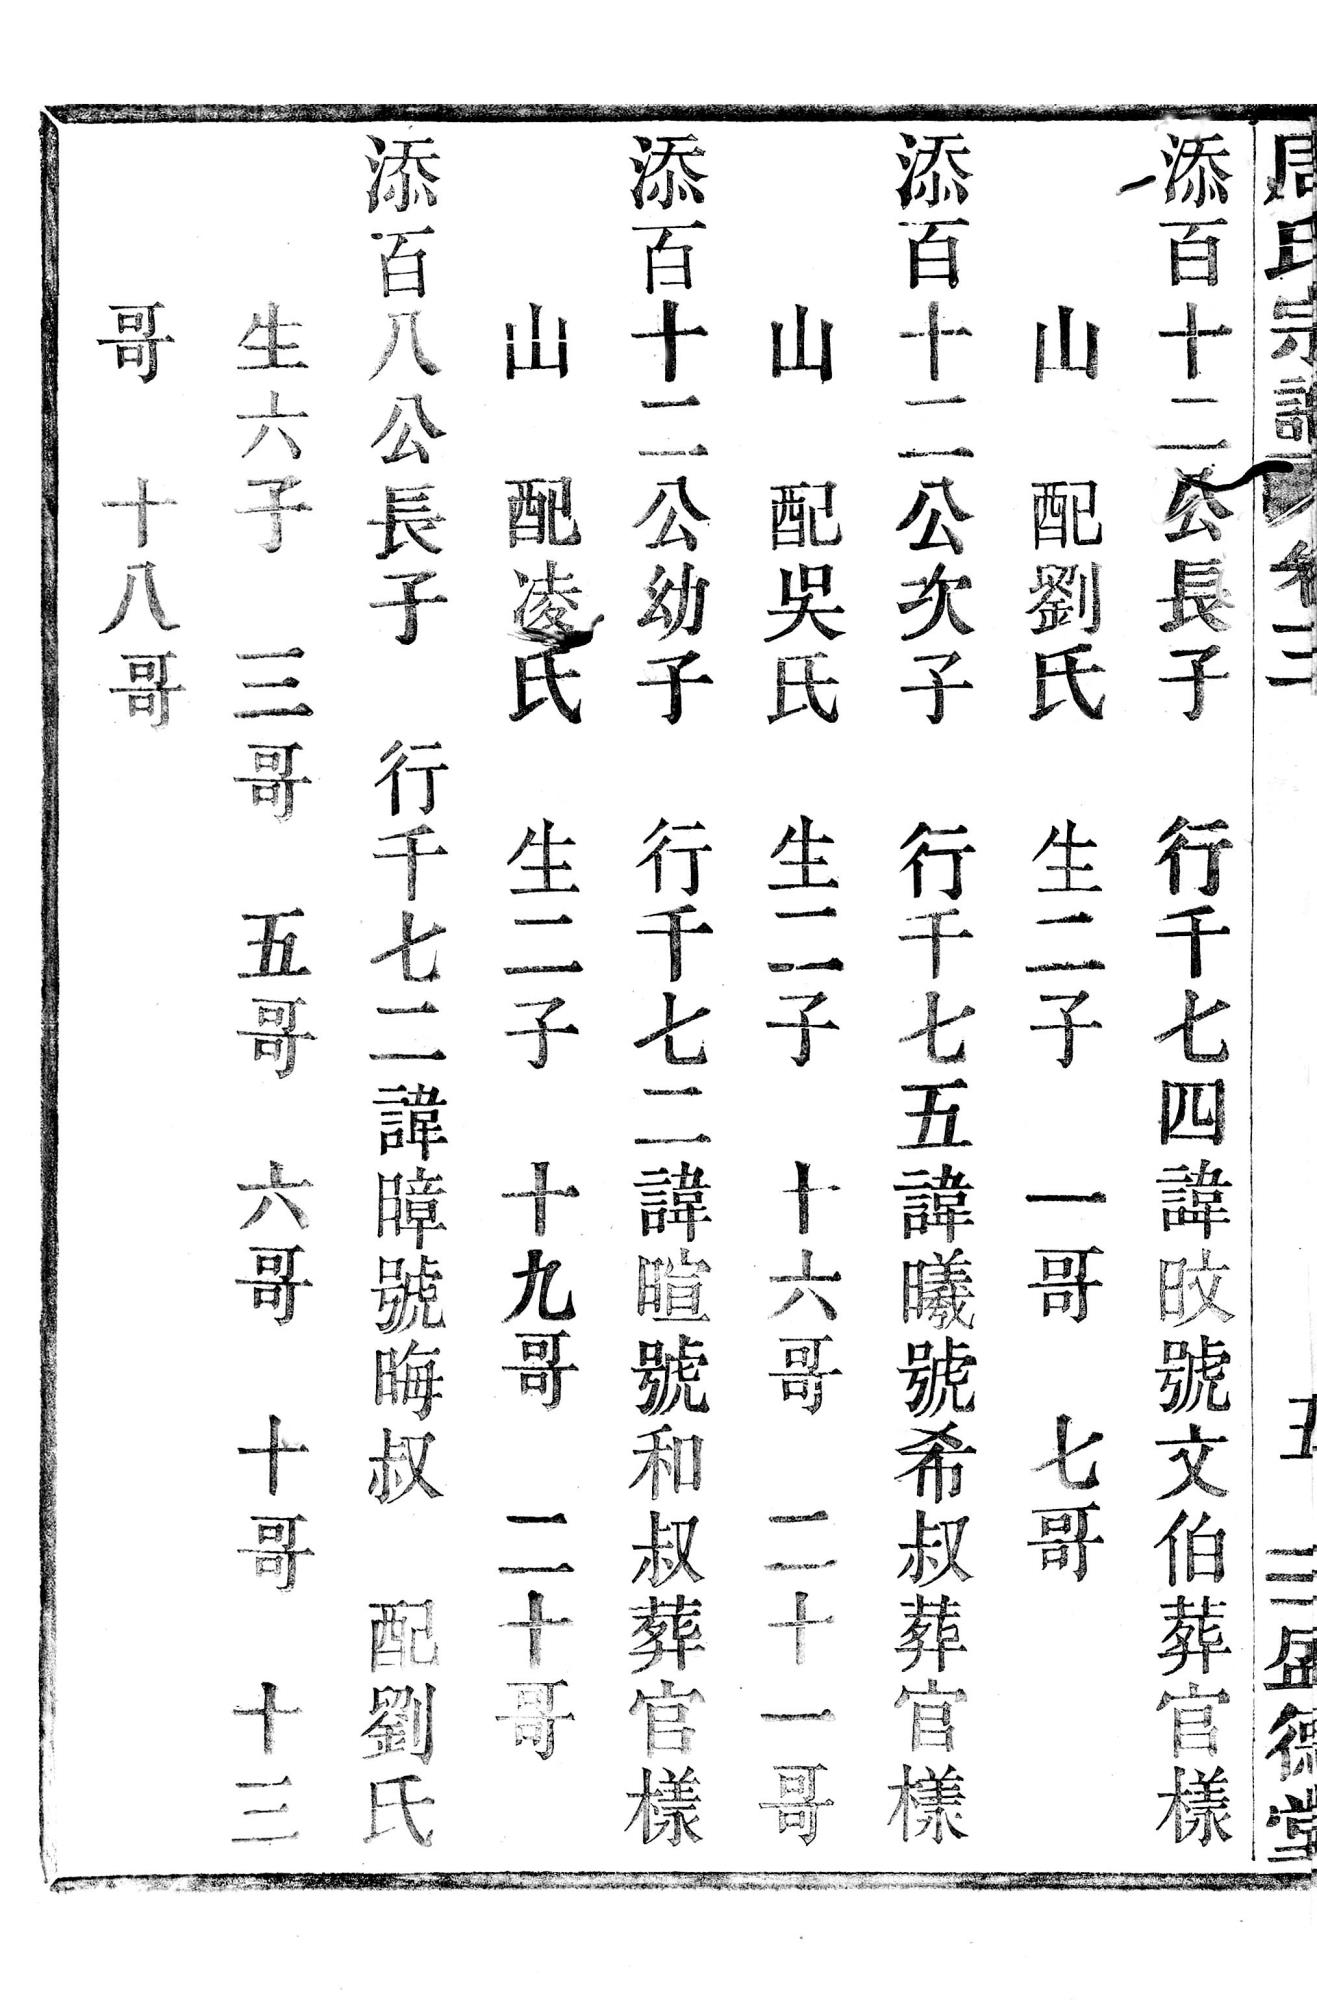 周氏宗譜 卷三 五 三盛德堂
添百十二公長子 行千七四諱旼號文伯葬官樣
山 配劉氏 生二子 一哥 七哥
添百十二公次子 行千七五諱曦號希叔葬官樣
山 配吳氏 生二子 十六哥 二十一哥
添百十二公幼子 行千七二諱暄號和叔葬官樣
山 配凌氏 生二子 十九哥 二十哥
添百八公長子 行千七二諱暲號晦叔 配劉氏
生六子 三哥 五哥 六哥 十哥 十三
哥 十八哥